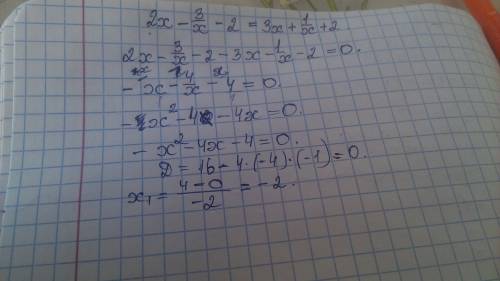 2x - 3/x - 2 = 3x + 1/x + 2
2x - 3/x - 2 - 3x - 1/x - 2 = 0.
- x - 4/x - 4 = 0.
- x² - 4 - 4x = 0.
- x² - 4x - 4 = 0.
D = 16 - 4·(-4)·(-1) = 0.
x₁ = (4 - 0)/(-2) = -2.